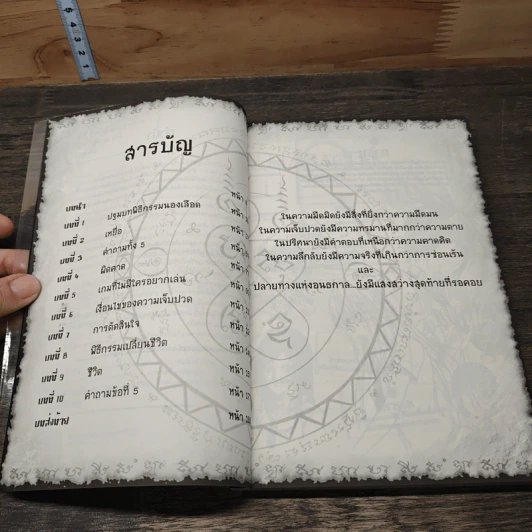 สารบัญ
บทนำ หน้า
บทที่ 1 ปฐมบทพิธีกรรมนองเลือด หน้า
บทที่ 2 เหยื่อ หน้า
บทที่ 3 คำถามทั้ง 5 หน้า
บทที่ 4 ผิดคาด หน้า
บทที่ 5 เกมที่ไม่มีใครอยากเล่น หน้า
บทที่ 6 เงื่อนไขของความเจ็บปวด หน้า
บทที่ 7 การตัดสินใจ หน้า
บทที่ 8 พิธีกรรมเปลี่ยนชีวิต หน้า
บทที่ 9 ชีวิต หน้า
บทที่ 10 คำถามข้อที่ 5 หน้า
บทส่งท้าย หน้า
ในความมืดมิดยังมีสิ่งที่ยิ่งกว่าความมืดมน
ในความเจ็บปวดยังมีความทรมานที่มากกว่าความตาย
ในปริศนายังมีคำตอบที่เหนือกว่าความคาดคิด
ในความลึกลับยังมีความจริงที่เกินกว่าการซ่อนเร้น
และ
ปลายทางแห่งอนธกาล...ยังมีแสงสว่างสุดท้ายที่รอคอย
5
4
3
2
1